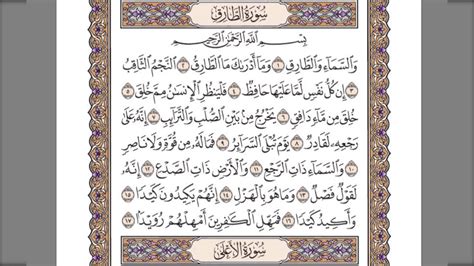 سُورَةُ الطَّارِقِ
بِسْمِ اللَّهِ الرَّحْمَٰنِ الرَّحِيمِ
وَالسَّمَاءِ وَالطَّارِقِ ١ وَمَا أَدْرَىٰكَ مَا الطَّارِقُ ٢ النَّجْمُ الثَّاقِبُ
٣ إِن كُلُّ نَفْسٍ لَّمَّا عَلَيْهَا حَافِظٌ ٤ فَلْيَنظُرِ الْإِنسَٰنُ مِمَّ خُلِقَ ٥
خُلِقَ مِن مَّاءٍ دَافِقٍ ٦ يَخْرُجُ مِن بَيْنِ الصُّلْبِ وَالتَّرَائِبِ ٧ إِنَّهُ عَلَىٰ
رَجْعِهِ لَقَادِرٌ ٨ يَوْمَ تُبْلَى السَّرَائِرُ ٩ فَمَا لَهُ مِن قُوَّةٍ وَلَا نَاصِرٍ
١٠ وَالسَّمَاءِ ذَاتِ الرَّجْعِ ١١ وَالْأَرْضِ ذَاتِ الصَّدْعِ ١٢ إِنَّهُ
لَقَوْلٌ فَصْلٌ ١٣ وَمَا هُوَ بِالْهَزْلِ ١٤ إِنَّهُمْ يَكِيدُونَ كَيْدًا
١٥ وَأَكِيدُ كَيْدًا ١٦ فَمَهِّلِ الْكَٰفِرِينَ أَمْهِلْهُمْ رُوَيْدًا ١٧
سُورَةُ الْأَعْلَىٰ